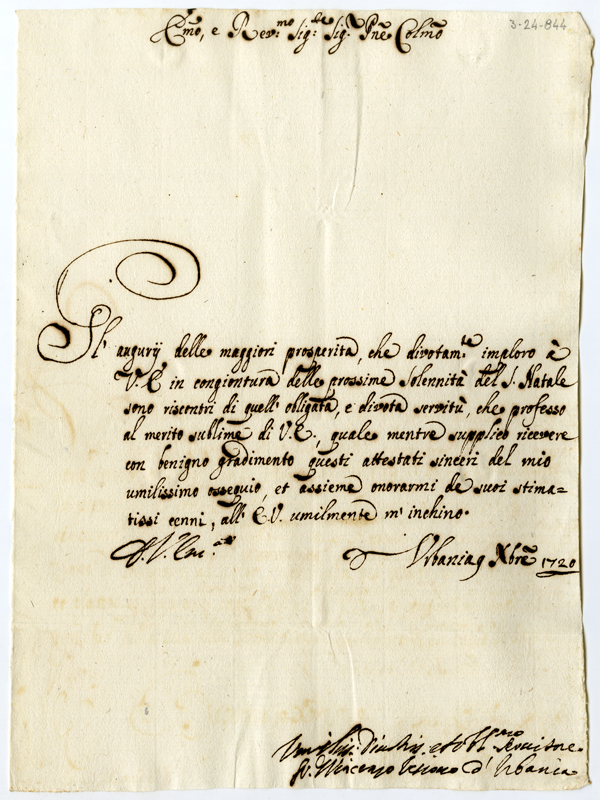 3-24-844
Em̃o, e Rev:mo Sig:re Sig:r Pñe Colm̃o
Gl' augurij delle maggiori prosperità, che divotam:te imploro à
V. E. in congiontura delle prossime Solennità del S. Natale
sono riscontri di quell' obligata, e divota servitù, che professo
al merito sublime di V. E., quale mentre supplico ricevere
con benigno gradimento questi attestati sinceri del mio
umilissimo ossequio, et assieme onorarmi de suoi stima=
tissi cenni, all' E. V. umilmente m' inchino.
D. V. Em:
Urbania 9 Xbre 1720
Servitore
d' Urbania